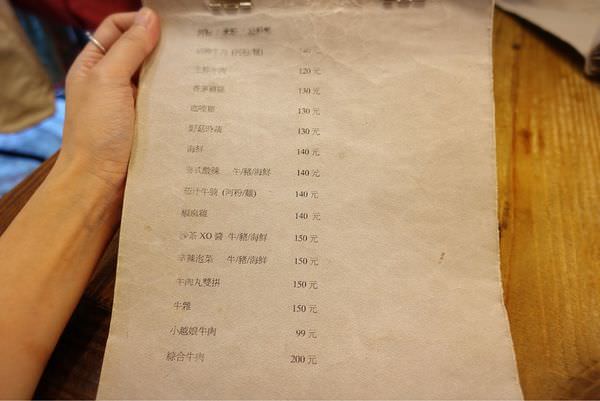 河粉 / 米粉 / 拉麵類
招牌牛肉 (河粉/麵) 140 元
生鮮牛肉 120 元
香茅雞腿 130 元
咖哩雞 130 元
野菇時蔬 130 元
海鮮 140 元
泰式酸辣 牛/豬/海鮮 140 元
茄汁牛腩 (河粉/麵) 140 元
椒麻雞 140 元
沙茶 XO 醬 牛/豬/海鮮 150 元
辛辣泡菜 牛/豬/海鮮 150 元
牛肉丸雙拼 150 元
牛雜 150 元
小越娘牛肉 99 元
綜合牛肉 200 元